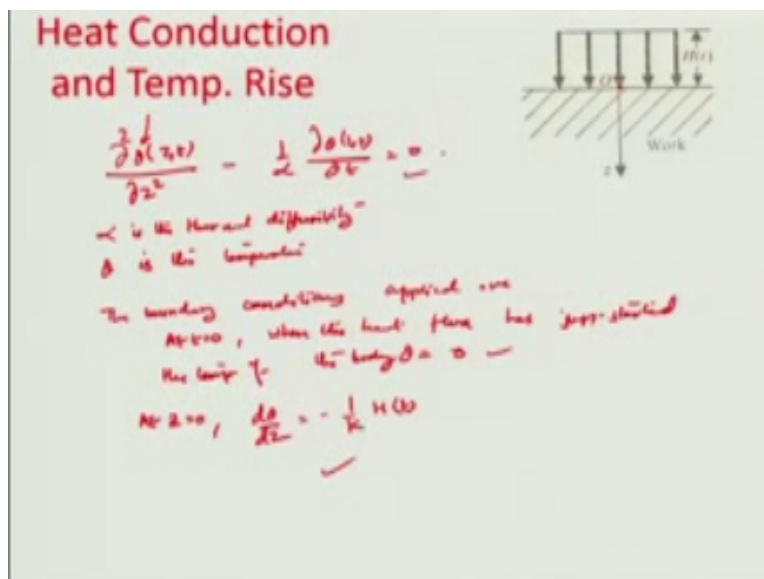 Heat Conduction
and Temp. Rise
H(t)
O
Work
z
∂²θ(z,t)/∂z² - 1/α ∂θ(z,t)/∂t = 0
α is the thermal diffusivity
θ is the temperature
The boundary conditions applied are
At t=0, when the heat flux has just started
the temp of the body θ = 0
At z=0, dθ/dz = - 1/k H(t)